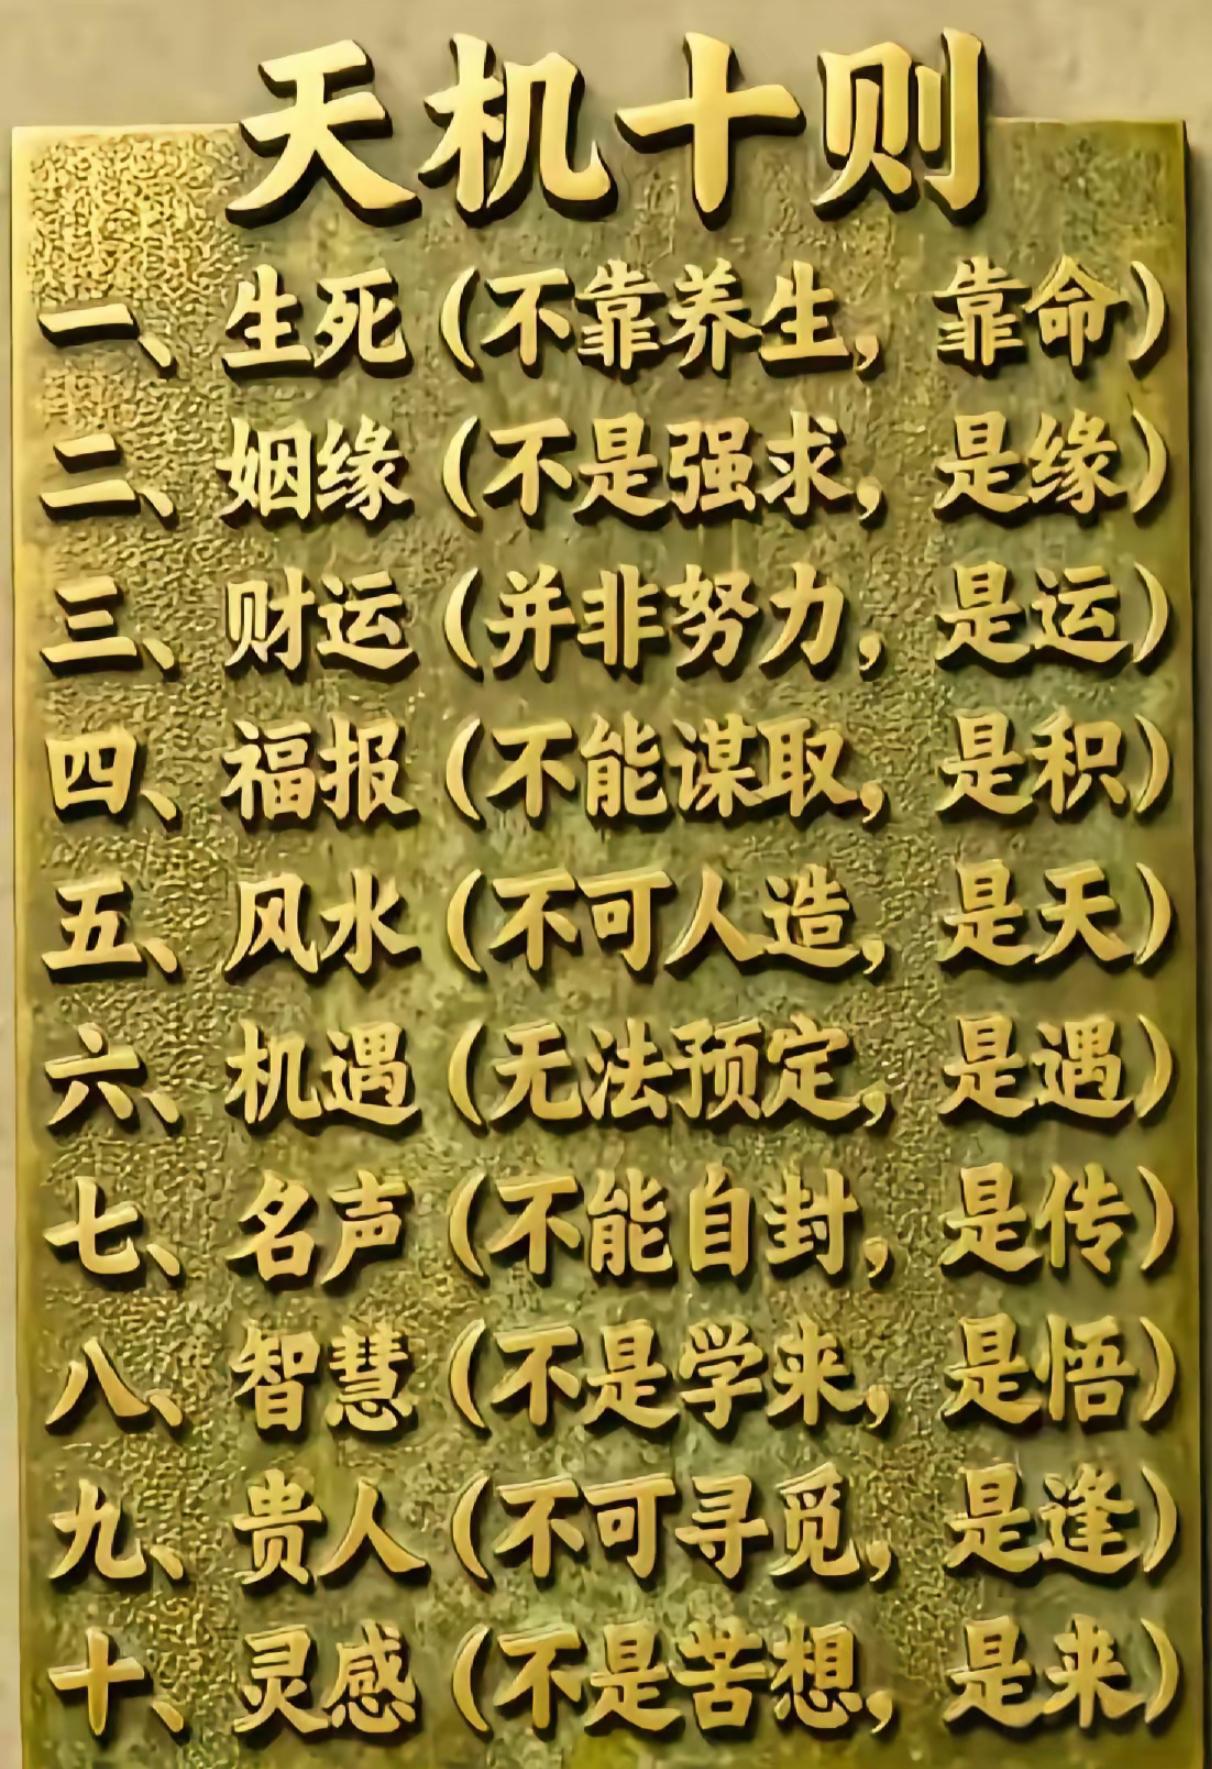 天机十则
一、生死(不靠养生,靠命)
二、姻缘(不是强求,是缘)
三、财运(并非努力,是运)
四、福报(不能谋取,是积)
五、风水(不可人造,是天)
六、机遇(无法预定,是遇)
七、名声(不能自封,是传)
八、智慧(不是学来,是悟)
九、贵人(不可寻觅,是逢)
十、灵感(不是苦想,是来)